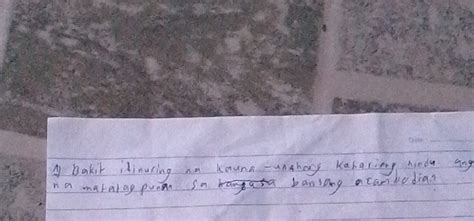 1) bakit itinuring na kauna-unahang kahariang hindu ang
na matatagpuan sa bansang cambodia?